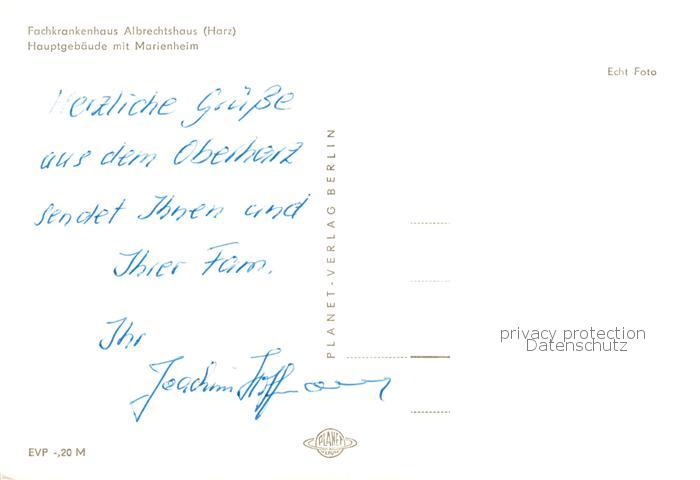 Fachkrankenhaus Albrechtshaus (Harz)
Hauptgebäude mit Marienheim
Echt Foto
Herzliche Grüße
aus dem Oberharz
sendet Ihnen und
Ihrer Fam.
Ihr
Joachim Hoffmann
PLANET-VERLAG BERLIN
privacy protection
Datenschutz
EVP -,20 M
PLANET